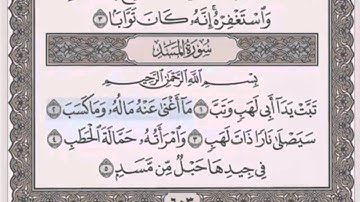 وَٱسْتَغْفِرْهُ إِنَّهُۥ كَانَ تَوَّابًا ٣
سُورَةُ المَسَد
بِسْمِ ٱللَّهِ ٱلرَّحْمَٰنِ ٱلرَّحِيمِ
تَبَّتْ يَدَآ أَبِى لَهَبٍ وَتَبَّ ١ مَآ أَغْنَىٰ عَنْهُ مَالُهُۥ وَمَا كَسَبَ ٢
سَيَصْلَىٰ نَارًا ذَاتَ لَهَبٍ ٣ وَٱمْرَأَتُهُۥ حَمَّالَةَ ٱلْحَطَبِ ٤
فِى جِيدِهَا حَبْلٌ مِّن مَّسَدٍۭ ٥
٦٠٣